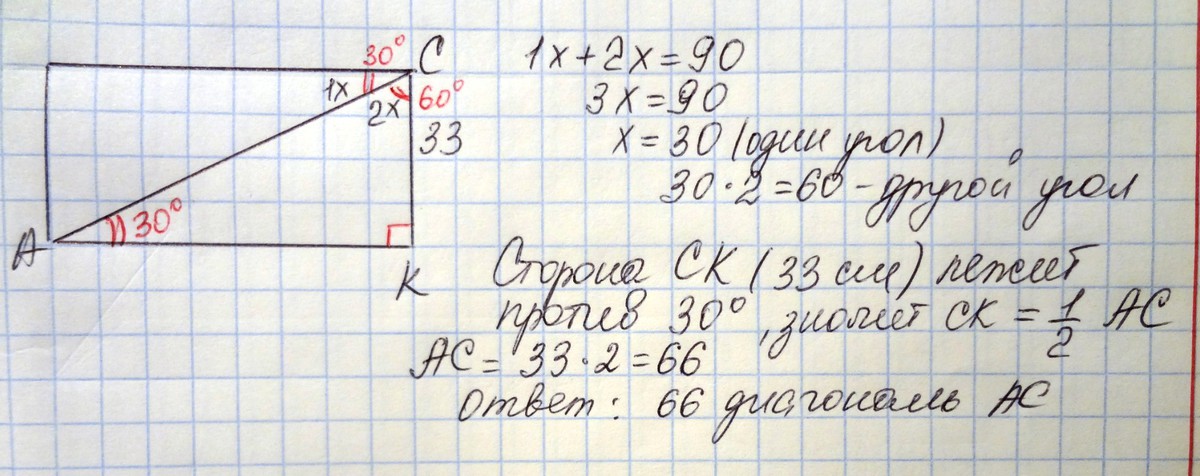 30° C
1x 2x 60°
33
A 30°
K
1x+2x=90
3x=90
x=30 (один угол)
30·2=60-другой угол
Сторона СК (33 см) лежит
против 30°, значит СК = 1/2 АС
АС= 33·2=66
Ответ: 66 диагональ АС